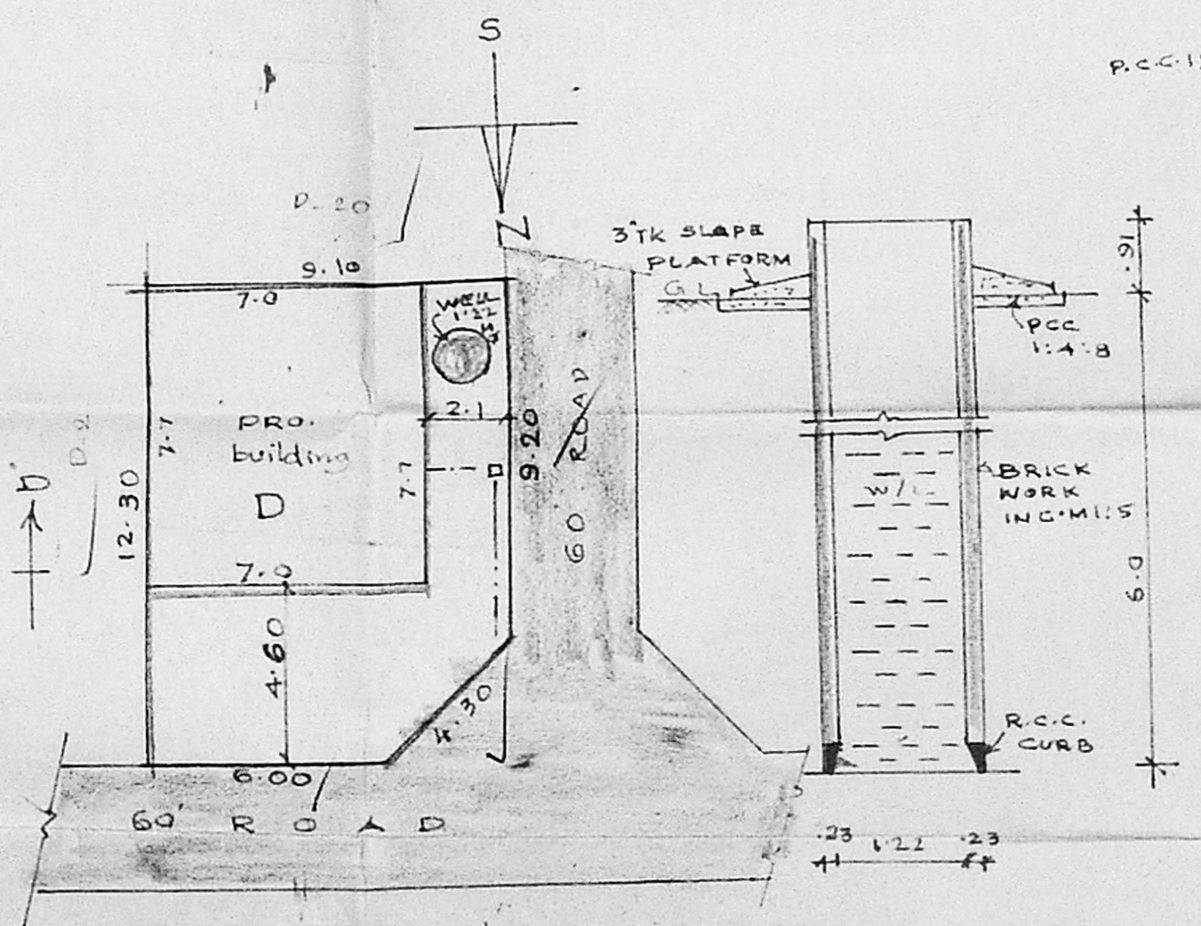 S
P.C.C.1:
D-20
N
3"TK SLOPE
PLATFORM
G.L
.91
PCC
1:4:8
9.10
7.0
WELL
1.22
2.1
7.7
PRO.
building
D
7.7
9.20
60' ROAD
D-2
'D'
12.30
7.0
4.60
4.30
6.00
60' ROAD
W/L
BRICK
WORK
IN C.M1:5
6.0
R.C.C.
CURB
.23 1.22 .23